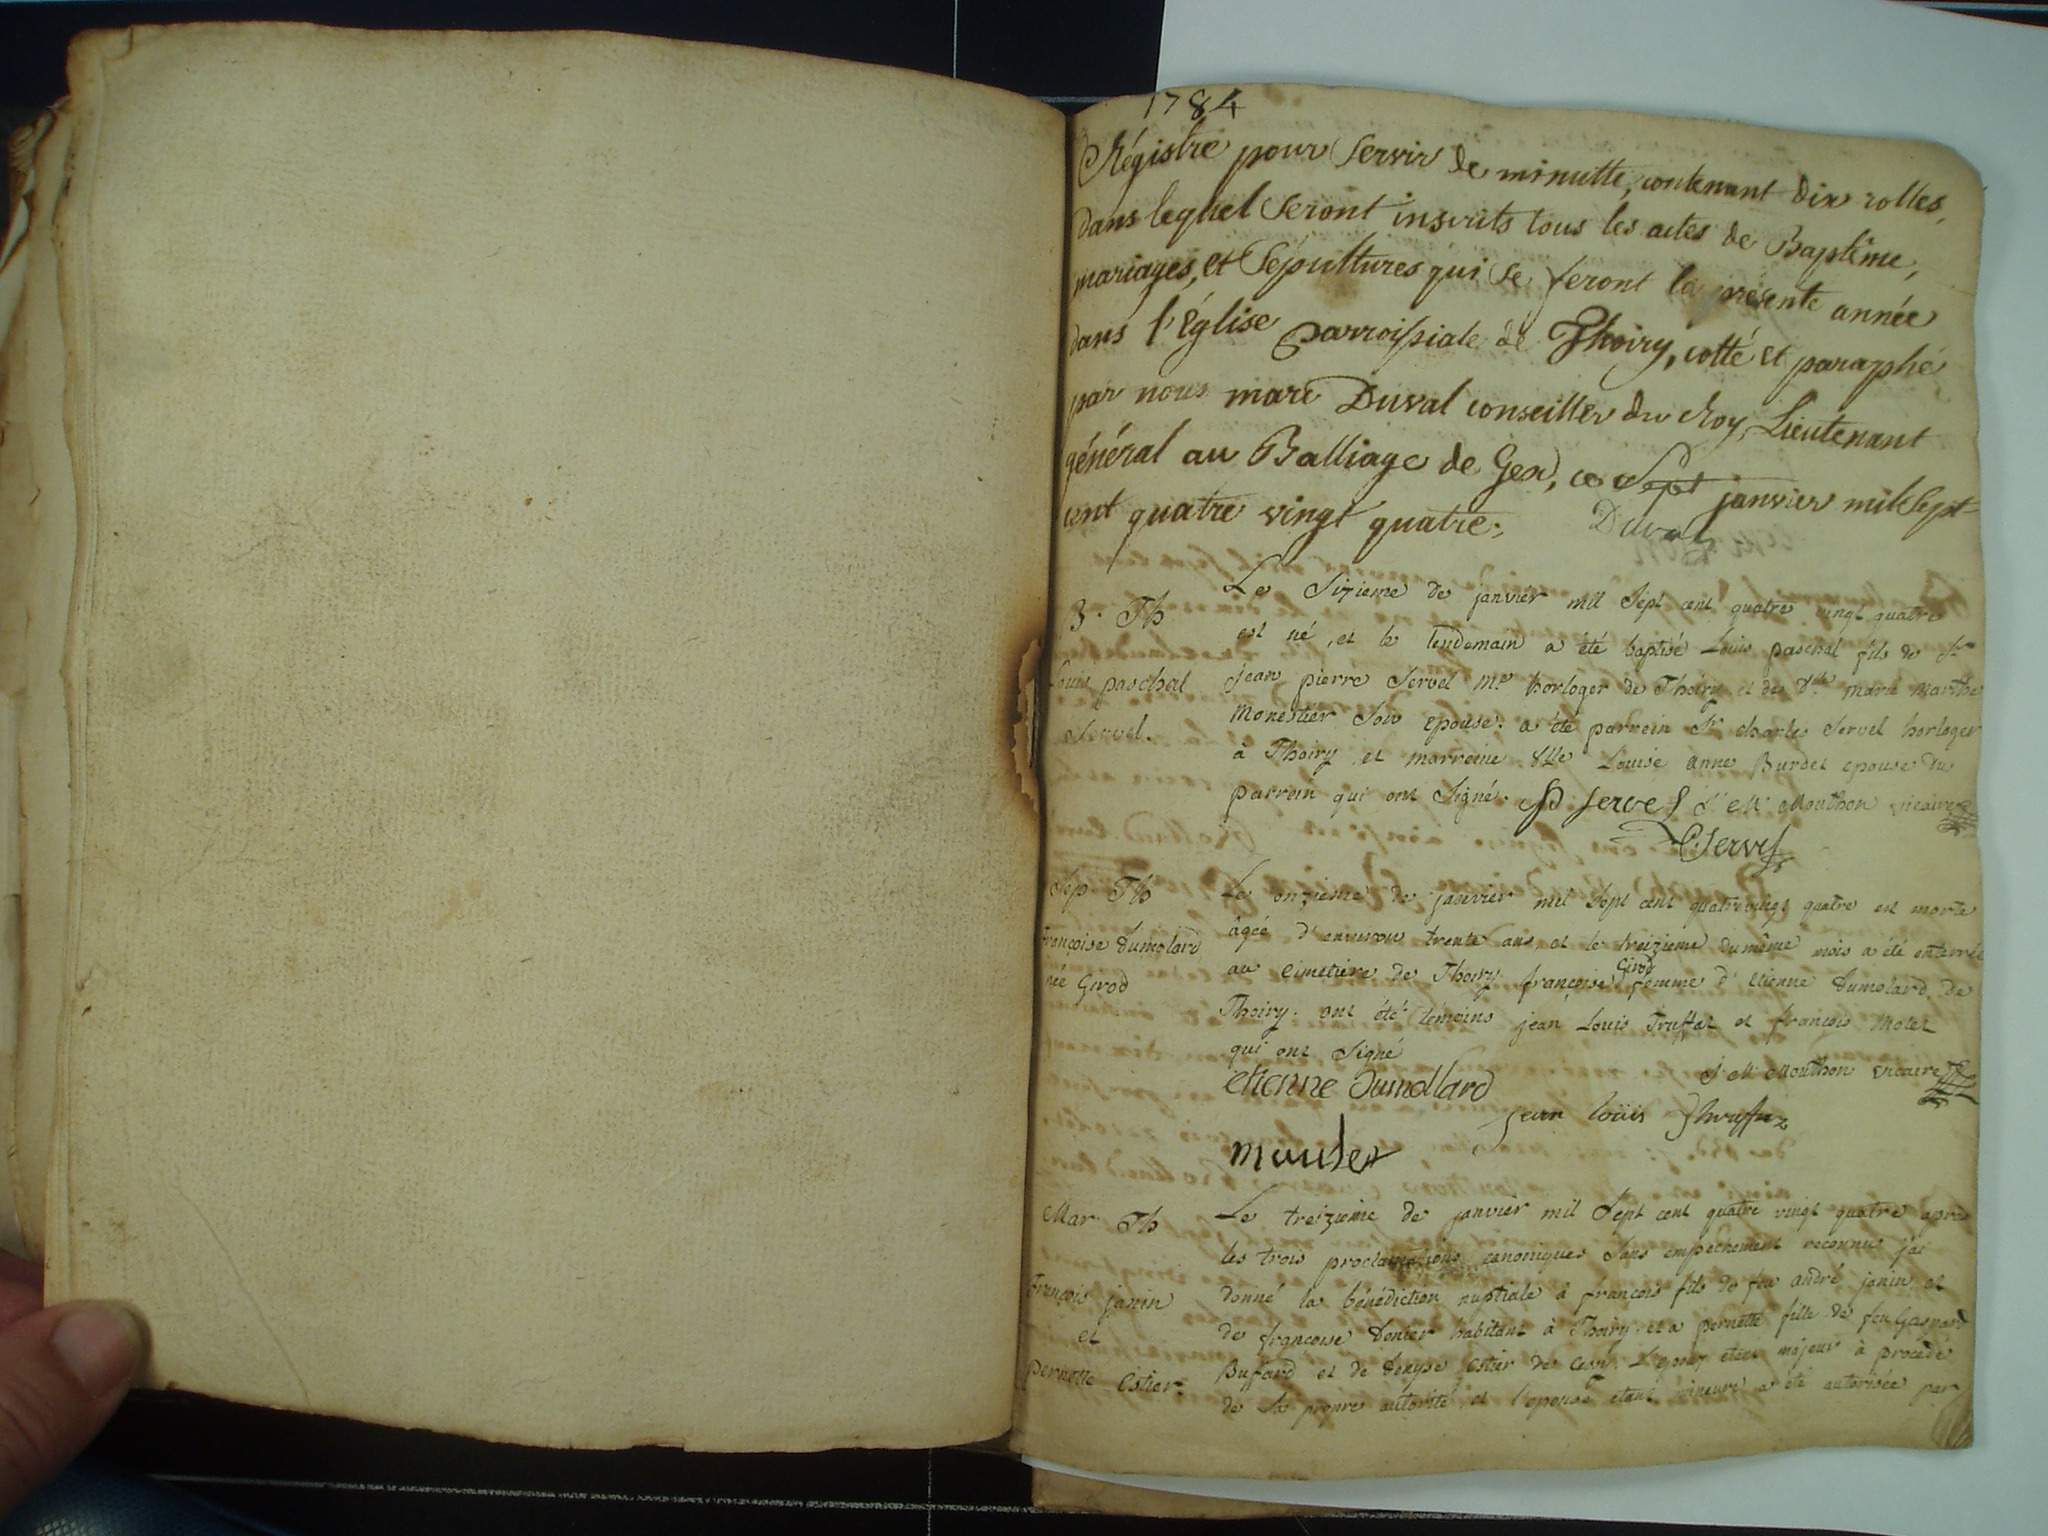 1784
Régistre pour Servir de minutte, contenant dix rolles,
dans lequel Seront inscrits tous les actes de Baptême,
mariages, et Sépultures qui se feront la présente année
dans l'Église parroissiale de Thoiry, cotté et paraphé
par nous marc Duval conseiller du Roy, Lieutenant
général au Balliage de Gex, ce Sept janvier mil Sept
cent quatre vingt quatre. Duval
B. Th
Louis paschal
Servel.
Le Sizieme de janvier mil Sept cent quatre vingt quatre
est né, et le lendemain a été baptisé Louis paschal fils de Sr
jean pierre Servel Me horloger de Thoiry et de Dlle marie marthe
Monestier Son epouse. a été parrein Sr charles Servel horloger
à Thoiry et marreine Dlle Louise anne Burdet epouse du
parrein qui ont Signé. Servel J. M. Mouthon vicaire
C Servel
Sep Th
françoise Dumolard
née Girod
Le onzieme de janvier mil Sept cent quatrevingt quatre est morte
âgée d'environ trente ans et le treizieme du même mois a été enterrée
au Cimetiere de Thoiry françoise Girod femme d'etienne Dumolard de
Thoiry. ont été témoins jean Louis Truffat et françois Motet
qui ont Signé
etienne Dumollard J. M. Mouthon vicaire
jean loüis
Mar Th
François janin
et
pernette Estier.
Le treizieme de janvier mil Sept cent quatre vingt quatre apres
les trois proclamations canoniques Sans empechement reconnu jai
donné la bénédiction nuptiale à francois fils de feu andré janin et
de françoise Donier habitant à Thoiry et a pernette fille de feu Gaspard
Buffard et de Denyse Estier de L'epoux etant majeur à procédé
de Sa propre autorité et l'epouse etant mineure a été autorisée par